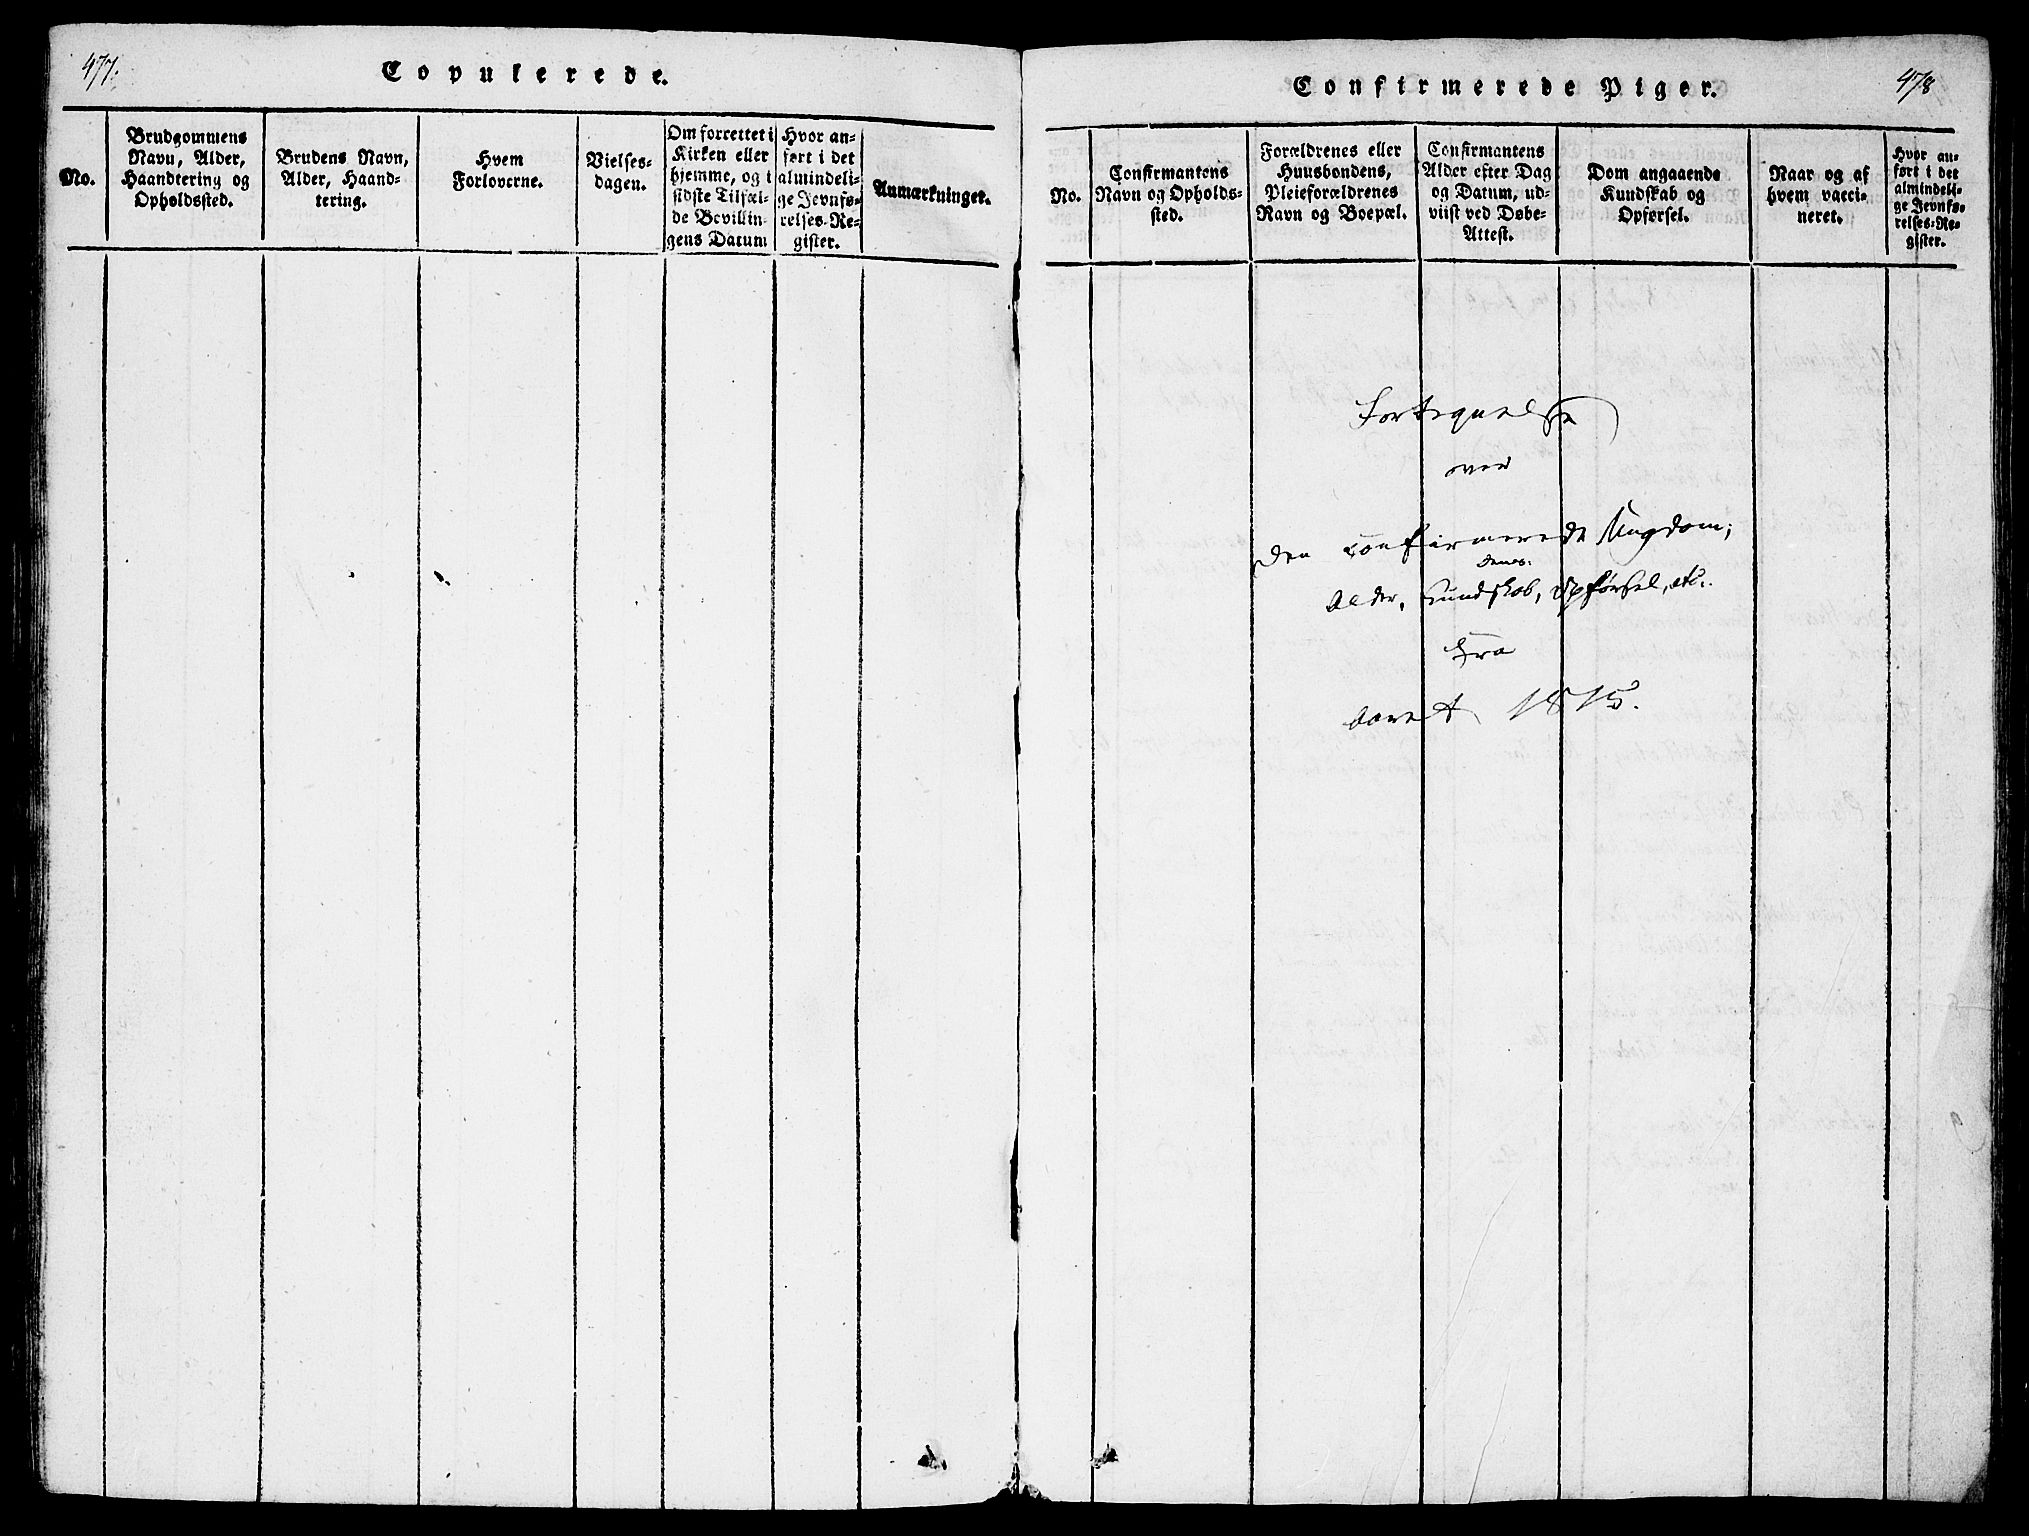 477.
Copulerede.
No.
Brudgommens
Navn, Alder,
Haandtering og
Opholdssted.
Brudens Navn,
Alder, Haand-
tering.
Hvem
Forloverne.
Vielses-
dagen.
Om forrettet i
Kirken eller
hjemme, og i
sidste Tilfæl-
de Bevillin-
gens Datum
Hvor an-
ført i det
almindeli-
ge Jevnfø-
relses-Re-
gister.
Anmærkninger.
Confirmerede Piger.
478
No.
Confirmantens
Navn og Opholds-
sted.
Forældrenes eller
Huusbondens,
Pleieforældrenes
Navn og Boepæl.
Confirmantens
Alder efter Dag
og Datum, ud-
viist ved Døbe-
Attest.
Dom angaaende
Kundskab og
Opførsel.
Naar og af
hvem vacci-
neret.
Hvor an-
ført i det
almindeli-
ge Jevnfø-
relses-Re-
gister.
Fortegnelse
over
den confirmerede Ungdom;
denes
Alder, Kundskab, Opførsel, etc.
fra
Aaret 1815.